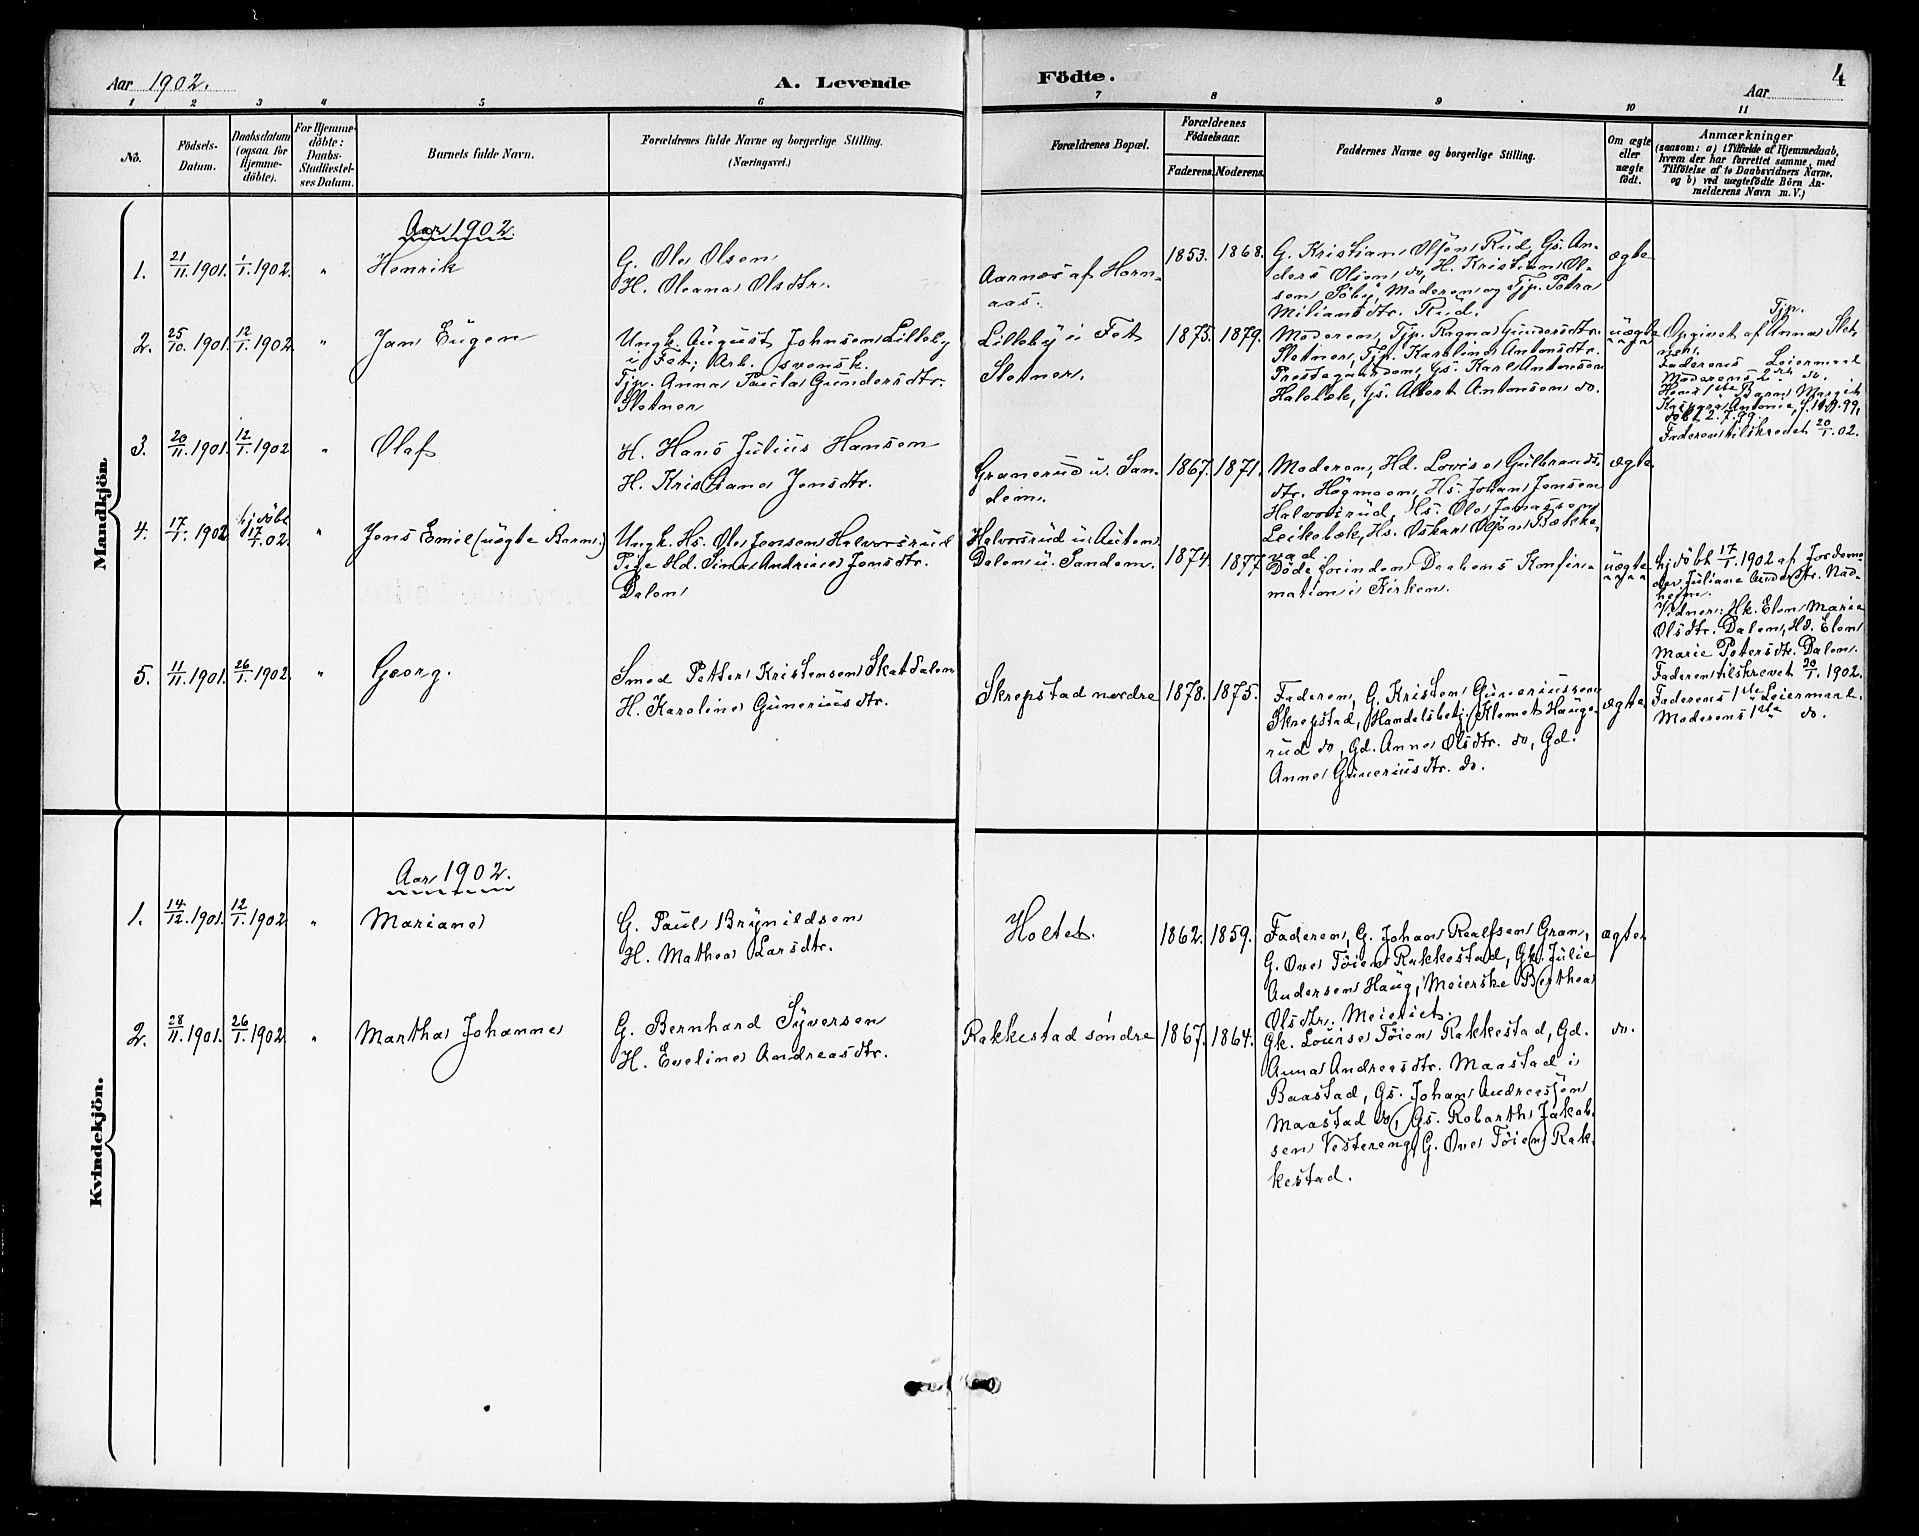 Aar 1902.
A. Levende
Födte.
4
Aar
1 2 3 4 5 6 7 8 9 10 11
No.
Födsels-
Datum.
Daabsdatum
(ogsaa for
Hjemme-
döbte).
For Hjemme-
döbte:
Daabs-
Stadfæstel-
ses Datum.
Barnets fulde Navn.
Forældrenes fulde Navne og borgerlige Stilling.
(Næringsvei.)
Forældrenes Bopæl.
Forældrenes
Födselsaar.
Faderens. Moderens.
Faddernes Navne og borgerlige Stilling.
Om ægte
eller
uægte
født.
Anmærkninger
(saasom: a) i Tilfælde af Hjemmedaab,
hvem der har forrettet samme, med
Tilföielse af to Daabsvidners Navne.
og b) ved uægtefödte Börn An-
melderens Navn m. V.)
Mandkjön.
Aar 1902.
1. 21/11. 1901. 1/1. 1902. " Henrik
G. Ole Olsen
H. Oleana Olsdtr.
Aarnæs af Horn-
aas.
1853. 1868.
G. Kristian Olsen Rud, Gs. An-
ders Olsen do, H. Kristian Ol-
sen Söby, Moderen og Tjp. Petra
Miliamsdtr. Rud.
ægte
2. 25/10. 1901. 12/1. 1902. " Jan Eugen
Ungk. August Johnsen Lilleby
i Fet, Arb. svensk.
Tjp. Anna Paula Gundersdtr.
Sletner
Lilleby i Fet
Sletner.
1875. 1879.
Moderen, Tjp. Ragna Gundersdtr.
Sletner, Tjp. Karoline Antonsdtr.
Prestegaarden, Gs. Karl Antonsen
Halebk, Gs. Albert Antonsen do.
uægte
Tjp.
Opgivet af Anna Slet-
ner.
Faderens Leiermaal
Moderens 2det do.
Hends 1ste Barn Margit
Kaspara Antonie, f. 99,
döbt 2.7.99.
Faderen tilskrevet 20/1. 02.
3. 20/11. 1901. 12/1. 1902 " Olaf
H. Hans Julius Hansen
H. Kristiane Jensdtr.
Granerud u. San-
dem.
1867. 1871.
Moderen, Hd. Lovise Gulbrands-
dtr. Högmoen, Hs. Johan Jensen
Halvorsrud, Hs. Ole Jonassen
Leikebæk, Hs. Oskar Olsen Bække-
vad.
ægte
4. 17/1. 1902 hjdöbt 17/1. 02. " Jens Emil (uægte Barn.)
Ungk. Hs. Ole Jensen Halvorsrud
Pige Hd. Sina Andrine Jensdtr.
Dalen
Halvorsrud u. Auten
Dalen u. Sandem.
1874. 1877
Döde forinden Daabens Konfir-
mation i Kirken.
uægte
hjdöbt 17/1. 1902 af Jordemo-
der Juliane Andersdtr. Nad-
heim.
Vidner: Hk. Elen Marie
Olsdtr. Dalen, Hd. Elen
Marie Petersdtr. Dalen.
Faderen tilskrevet 20/1. 1902.
Faderens 1ste Leiermaal.
Moderens 1ste do.
5. 11/11. 1901. 26/1. 1902. " Georg.
Smed Petter Kristensen Skatdalen
H. Karoline Guneriusdtr.
Skrepstad nordre
1878. 1875.
Faderen, G. Kristen Guneriussen
Skrepstad, Handelsbetj. Klemet Hauge-
rud do, Gd. Anne Olsdtr. do, Gd.
Anne Guneriusdtr. do.
ægte
Kvindekjön.
Aar 1902.
1. 14/12. 1901. 12/1. 1902. " Mariane
G. Paul Brynildsen
H. Mathea Larsdtr.
Holtet.
1862. 1859.
Faderen, G. Johan Realfsen Gran,
G. Ove Töien Rakkestad, Gk. Julie
Andersen Haug, Meierske Berthea
Olsdtr. Meieriet.
ægte
2. 28/11. 1901. 26/1. 1902 " Martha Johanne
G. Bernhard Syversen
H. Eveline Andreasdtr.
Rakkestad söndre
1867. 1864.
Gk. Lourse Töien Rakkestad, Gd.
Anna Andreasdtr. Maastad i
Baastad, Gs. Johan Andreasen
Maastad do, Gs. Robarth Jakob-
sen Vestereng, G. Ove Töien Rak-
kestad.
do.